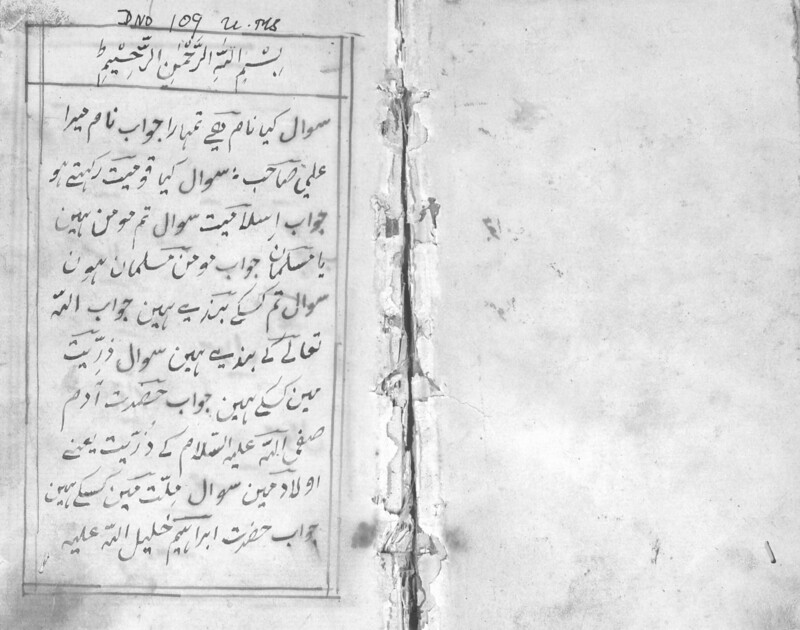 DNO 109 U. MS
بِسْمِ اللهِ الرَّحْمٰنِ الرَّحِيْمِ
سوال کیا نام ہیے تمہارا جواب نام میرا
علی صاحب ؛ سوال کیا قومیت رکہتے ہو
جواب اِسلامیت سوال تم مومن ہین
یا مسلمان جواب مومن مسلمان ہون
سوال تم کسکے بندیے ہین جواب اللّہ
تعالےٰ کے بندیے ہین سوال ذرِّیت
مین کسکے ہین جواب حضرت آدم
صفی اللّہ علیہ السّلام کے ذُرّیت یعنے
اولاد مین سوال مِلّت مین کسکے ہین
جواب حضرت ابراہیم خلیل اللّہ علیہ